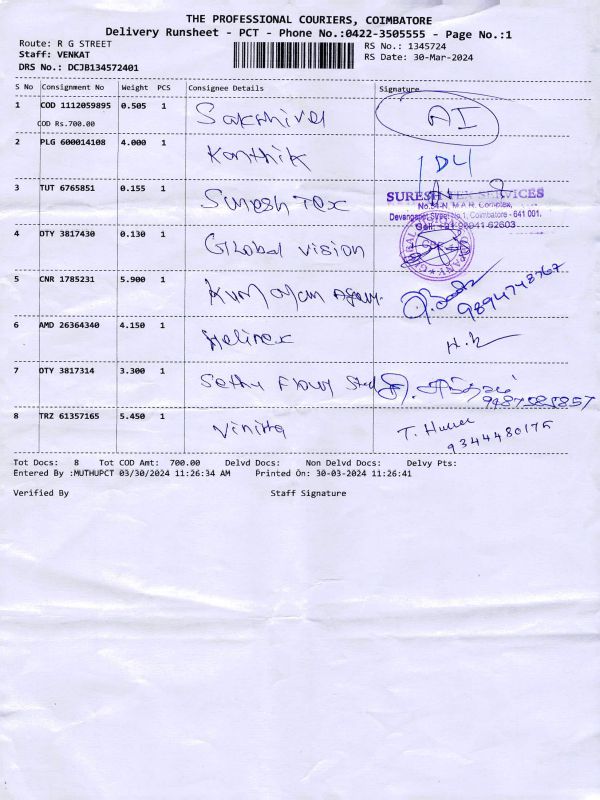 THE PROFESSIONAL COURIERS, COIMBATORE
Delivery Runsheet - PCT - Phone No.:0422-3505555 - Page No.:1
Route: R G STREET
RS No.: 1345724
Staff: VENKAT
RS Date: 30-Mar-2024
DRS No.: DCJB134572401
S No Consignment No Weight PCS Consignee Details Signature
1 COD 1112059895 0.505 1 Sakthivel AI
COD Rs.700.00
2 PLG 600014108 4.000 1 Karthik
3 TUT 6765851 0.155 1 Suresh Tex
SURESH TEX SERVICES
No.51-N, M.A.R. Complex,
Devangapet Street No.1, Coimbatore - 641 001.
Cell: +91 98941 62603
4 DTY 3817430 0.130 1 Global vision
5 CNR 1785231 5.900 1
9894748767
6 AMD 26364340 4.150 1 Helinex
7 DTY 3817314 3.300 1 Sethu
8 TRZ 61357165 5.450 1 Vinitha
9344480175
Tot Docs: 8 Tot COD Amt: 700.00 Delvd Docs: Non Delvd Docs: Delvy Pts:
Entered By :MUTHUPCT 03/30/2024 11:26:34 AM Printed On: 30-03-2024 11:26:41
Verified By Staff Signature